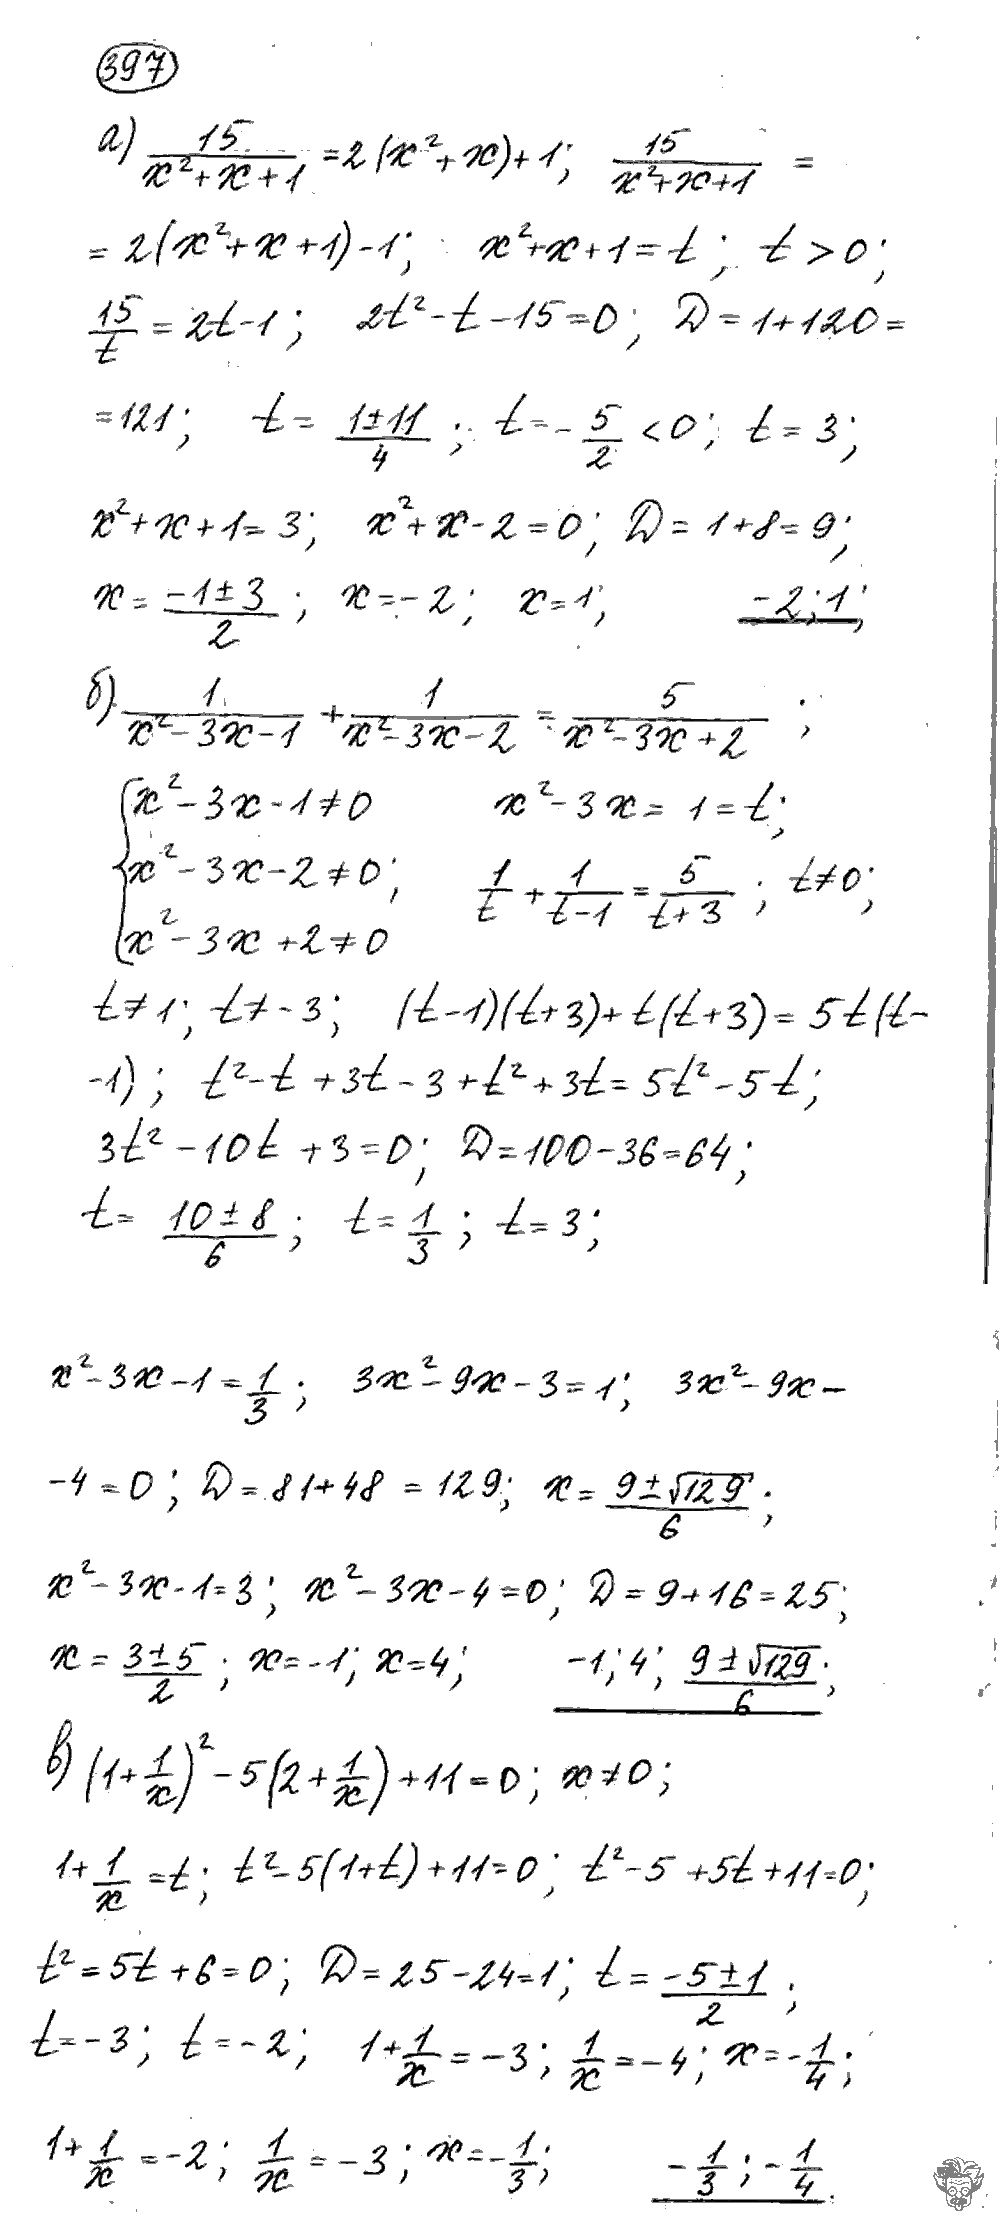 397
а) 15/(x²+x+1) = 2(x²+x)+1; 15/(x²+x+1) =
= 2(x²+x+1)-1; x²+x+1=t; t>0;
15/t = 2t-1; 2t²-t-15=0; D=1+120=
=121; t= (1±11)/4; t=-5/2<0; t=3;
x²+x+1=3; x²+x-2=0; D=1+8=9;
x= (-1±3)/2; x=-2; x=1; -2; 1;
б) 1/(x²-3x-1) + 1/(x²-3x-2) = 5/(x²-3x+2);
{x²-3x-1≠0 x²-3x= 1=t;
x²-3x-2≠0; 1/t + 1/(t-1) = 5/(t+3); t≠0;
x²-3x+2≠0
t≠1; t≠-3; (t-1)(t+3)+t(t+3)=5t(t-
-1); t²-t+3t-3+t²+3t=5t²-5t;
3t²-10t+3=0; D=100-36=64;
t= (10±8)/6; t=1/3; t=3;
x²-3x-1=1/3; 3x²-9x-3=1; 3x²-9x-
-4=0; D=81+48=129; x= (9±√129)/6;
x²-3x-1=3; x²-3x-4=0; D=9+16=25;
x= (3±5)/2; x=-1; x=4; -1; 4; (9±√129)/6;
в) (1+1/x)²-5(2+1/x)+11=0; x≠0;
1+1/x=t; t²-5(1+t)+11=0; t²-5+5t+11=0;
t²=5t+6=0; D=25-24=1; t= (-5±1)/2;
t=-3; t=-2; 1+1/x=-3; 1/x=-4; x=-1/4;
1+1/x=-2; 1/x=-3; x=-1/3; -1/3; -1/4.